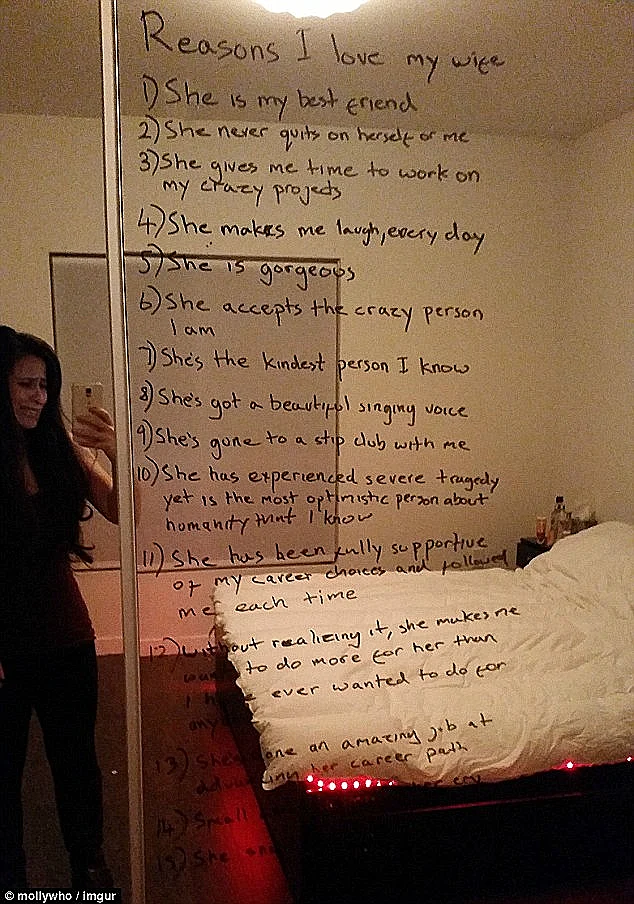 Reasons I love my wife
1) She is my best friend
2) She never quits on herself or me
3) She gives me time to work on
my crazy projects
4) She makes me laugh, every day
5) She is gorgeous
6) She accepts the crazy person
I am
7) She's the kindest person I know
8) She's got a beautiful singing voice
9) She's gone to a stip club with me
10) She has experienced severe tragedy
yet is the most optimistic person about
humanity that I know
11) She has been fully supportive
of my career choices and followed
me each time
12) Without realizing it, she makes me
to do more for her than
I ever wanted to do for
any
13) She's one an amazing job at
her career path
14) Small her cry
15) She
© mollywho / imgur